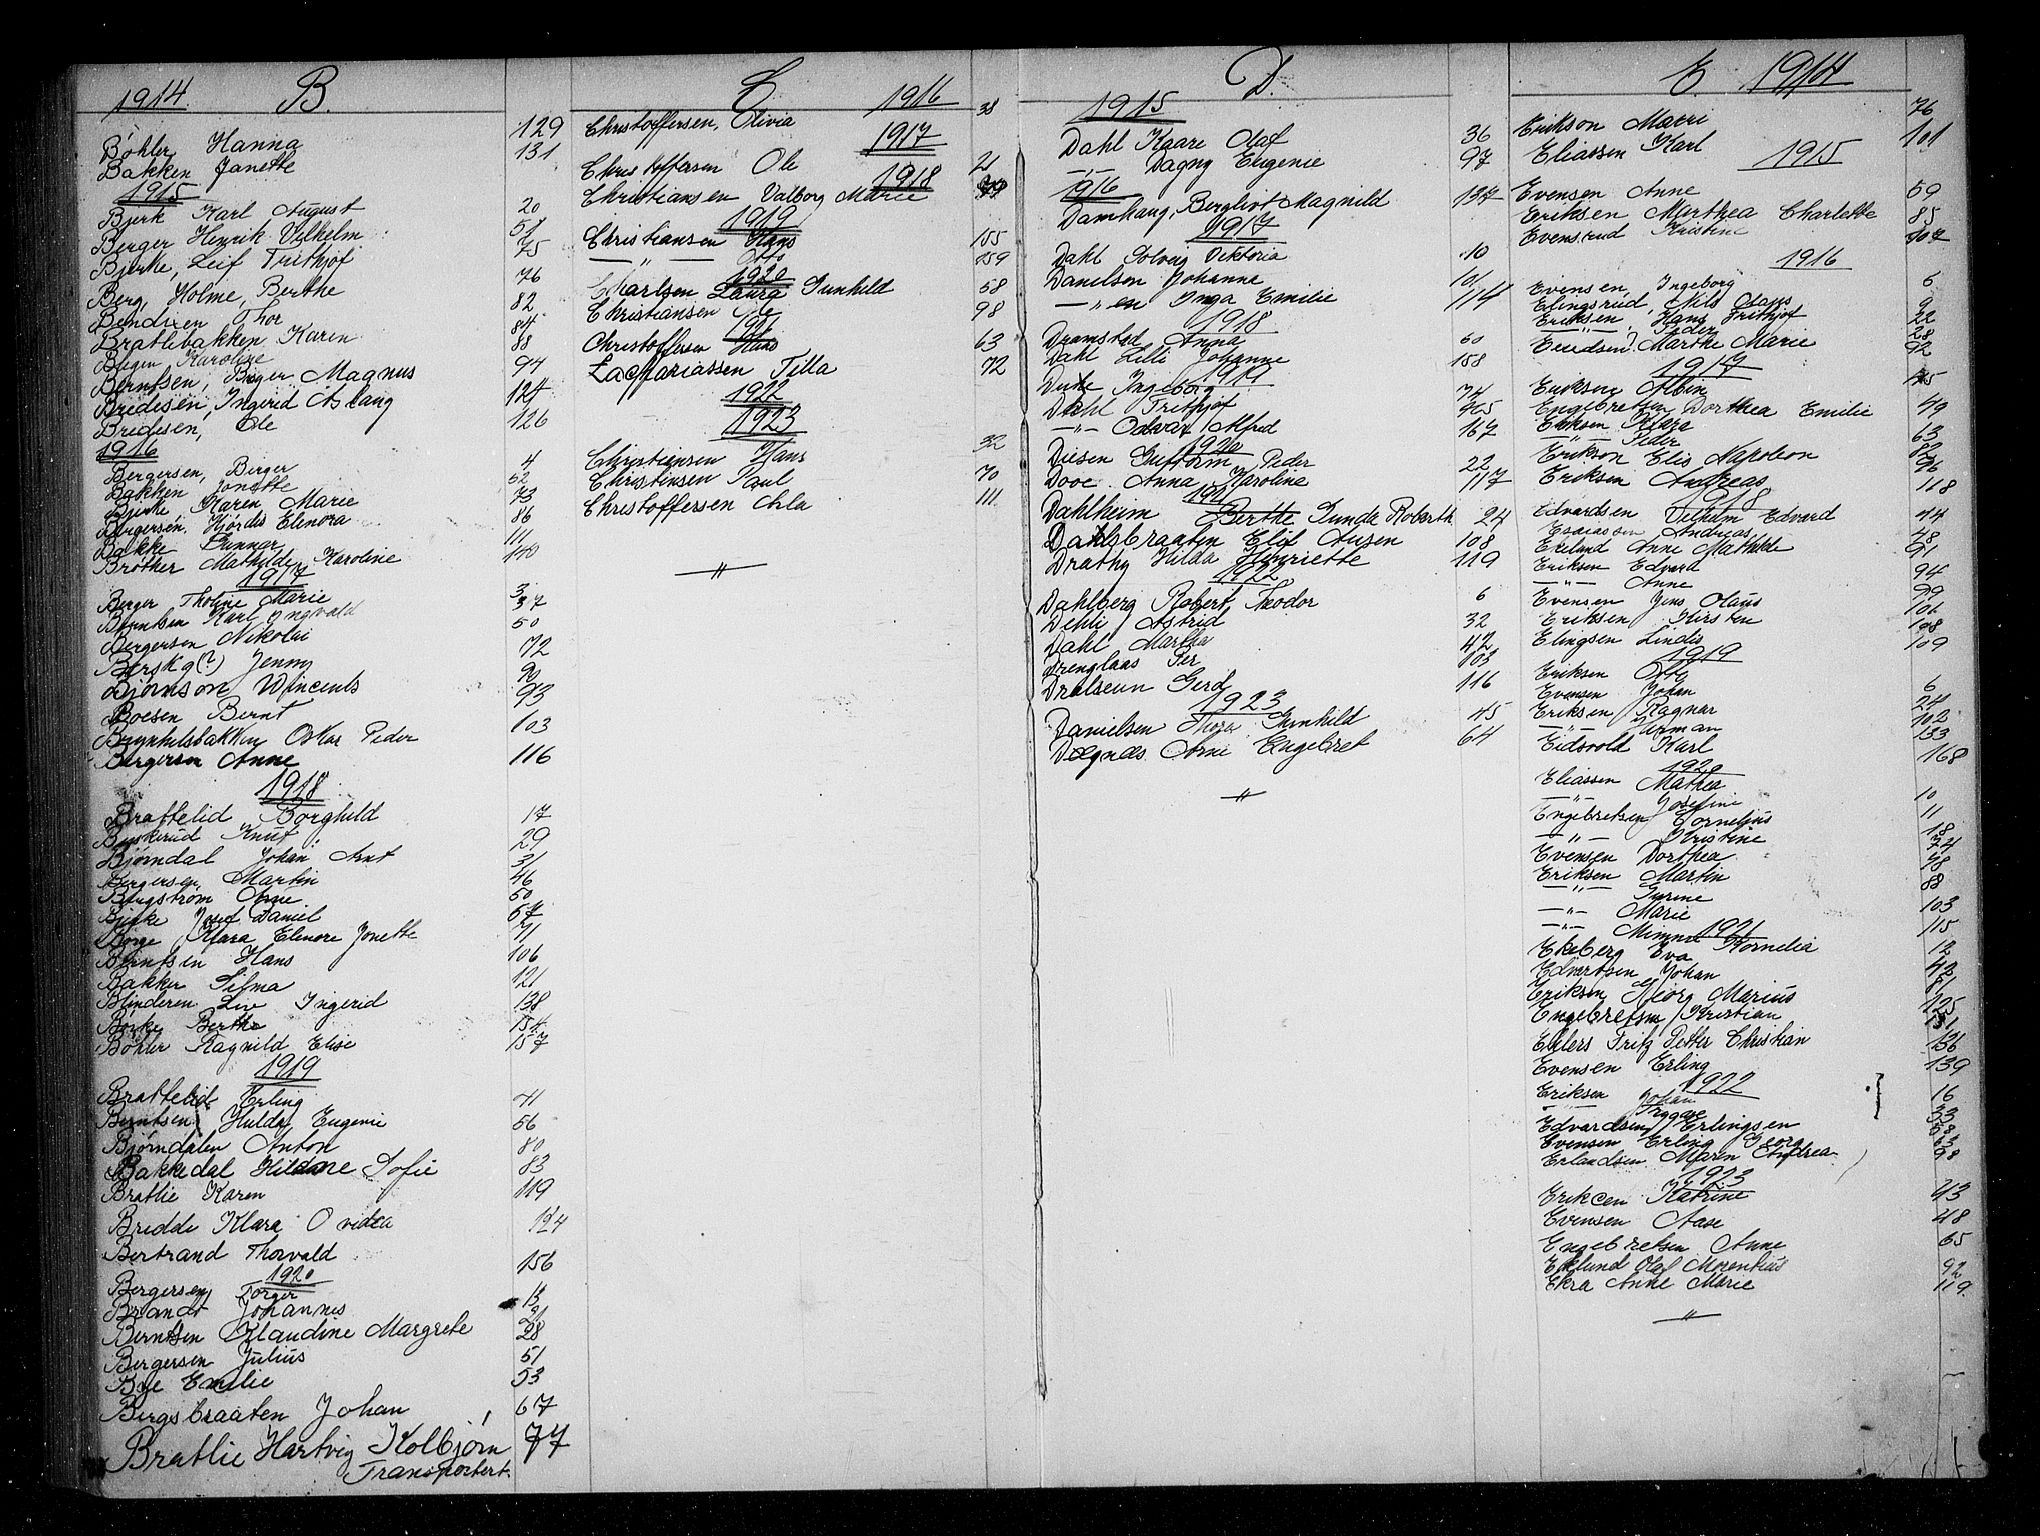 1914. B.
Bøhler Hanna 129
Bakken Janette 131
1915
Bjerk Karl August 20
Berger Henrik Vilhelm 51
Bjerke, Leif Frithjof 75
Berg, Holme, Berthe 76
Bendixen Thor 82
Bratlibakken Karen 84
Karoline 88
Berntsen, Birger Magnus 94
Bredesen, Ingerid Aslaug 124
Bredesen, Ole 126
1916
Bergersen, Birger 4
Bakken Jonette 52
Bjerke Karen Marie 73
Bergersen, Hjørdis Elenora 86
Bakke Gunnar 111
Brøther Mathilde Karoline 140
1917
Berger Tholine Marie 3
Berntsen Karl Ingvald 37
Bergersen Nikolai 50
(?) Jenny 72
Bjørnson Wincents 90
Boesen Bernt 93
Brynhilsbakken Oskar Peder 103
Bergersen Anne 116
1918
Brattelid Borghild 17
Buskerud Knut 29
Bjørndal Johan Arnt 31
Bergersen, Martin 46
Bergstrøm 50
Bjerke Josef Daniel 57
Børge Klara Elenore Jonette 71
Berntsen Hans 106
Bakker Silma 121
Blinderen Liv Ingerid 138
Børke Berthe 154
Bøhler Ragnild Elise 157
1919
Brattelid Erling 41
Berntsen Hulda, Eugenie 56
Bjørndalen Anton 80
Bakkedal Sofie 83
Bratlie Karen 119
Bredde Klara Ovidia 124
Bertrand Thorvald 156
1920
Bergersen, Torger
Brandt Johannes 21
Berntsen Klaudine Margrete 28
Bergersen Julius 51
Bye Emilie 53
Bergsbraaten Johan 67
Bratlie Hartvig Kolbjørn 77
Transportert.
C 1916
Christoffersen, Olivia 38
1917
Christoffersen Ole 21
1918
Christiansen Valborg Marie
1919
Christiansen Hans 155
—"— Otto 159
1920
Charlsen Laura Gunhild 58
Christiansen Ole 98
1921
Christoffersen Hans 63
Zachariassen Tilla 72
1922
1923
Christiansen Hans 32
Christinsen Paul 70
Christoffersen Arla 111.
—"—
D.
1915
Dahl Kaare Olaf 36
—"— Dagny Eugenie 97
1916
Damhaug, Bergliot Magnild 137
1917
Dahl Solveig Viktoria 10
Danielsen Johanne 101
—"—en Inga Emilie 114
1918
Dramstad Anna 60
Dahl Lilli Johanne 158
1919
Ingeborg 74
Dahl Frithjof 105
—"— Odvar Alfred 167
1920
Diesen Guttorm Peder 22
Dove Anna Karoline 117
1921
Dahlheim Berthe Gunda Roberth 24
Dahlsbraaten Elif Ausen 108
Drathy Hilda Henriette 119
1922
Dahlberg Robert, Teodor 6
Dehli Astrid 32
Dahl Martha 42
Drenglaas Per 103
Gerd 116
1923
Danielsen Thoger Gunhild 45
Dægnæs Arne Engebret 64
—"—
E. 1914
Erikson Marri 76
Eliassen Karl 101
1915
Evensen Anne 59
Eriksen Marthea Charlotte 85
Evensrud Kristine 107
1916
Evensen, Ingeborg 6
Elingsrud, Nils Claus 9
Eriksen, Hans Frithjof 22
—"— Peder 28
Marthe Marie 92
1917
Eriksen Albin
Engebretsen Dorthea Emilie 49
Eriksen Klara 63
—"— Peder 82
Erikson Elis Napoleon 96
Eriksen Andreas 118
1918
Edvardsen Vilhelm Edvard 44
Esaiassen Andreas 78
Anne Mathilde 91
Eriksen Edvard 94
—"— Anne 99
Evensen Jens Olaus 106
Eriksen Kirsten 108
Elingsen Lindis 109
1919
Eriksen Otto 6
Evensen Johan 24
Eriksen Ragnar 102
—"— Herman 133
Eidsvold Karl 168
1920
Eliassen Mathea 10
—"— Josefine 11
Engebretsen Cornelius 18
—"— Kristine 34
Evensen Dorthea 48
Eriksen Martin 88
—"— Gurine 103
—"— Marie 115
—"— Minna
1921
Ekeberg Eva Kornelia 12
Edvertsen Johan 42
Eriksen Georg Marius 81
Engebretsen Kristian 125
Ehlers Fritz Petter Christian 136
Evensen Erling 139
1922
Eriksen Johan 16
Tryggve 33
Edvardsen Erlingsen
Evensen Erling Georg 63
Erlandsen Maren Andrea 98
1923
Eriksen Katrine 43
Evensen Aase 48
Engebretsen Anne 65
Eklund Olaf Morenkius 92
Ekra Anne Marie 119
—"—